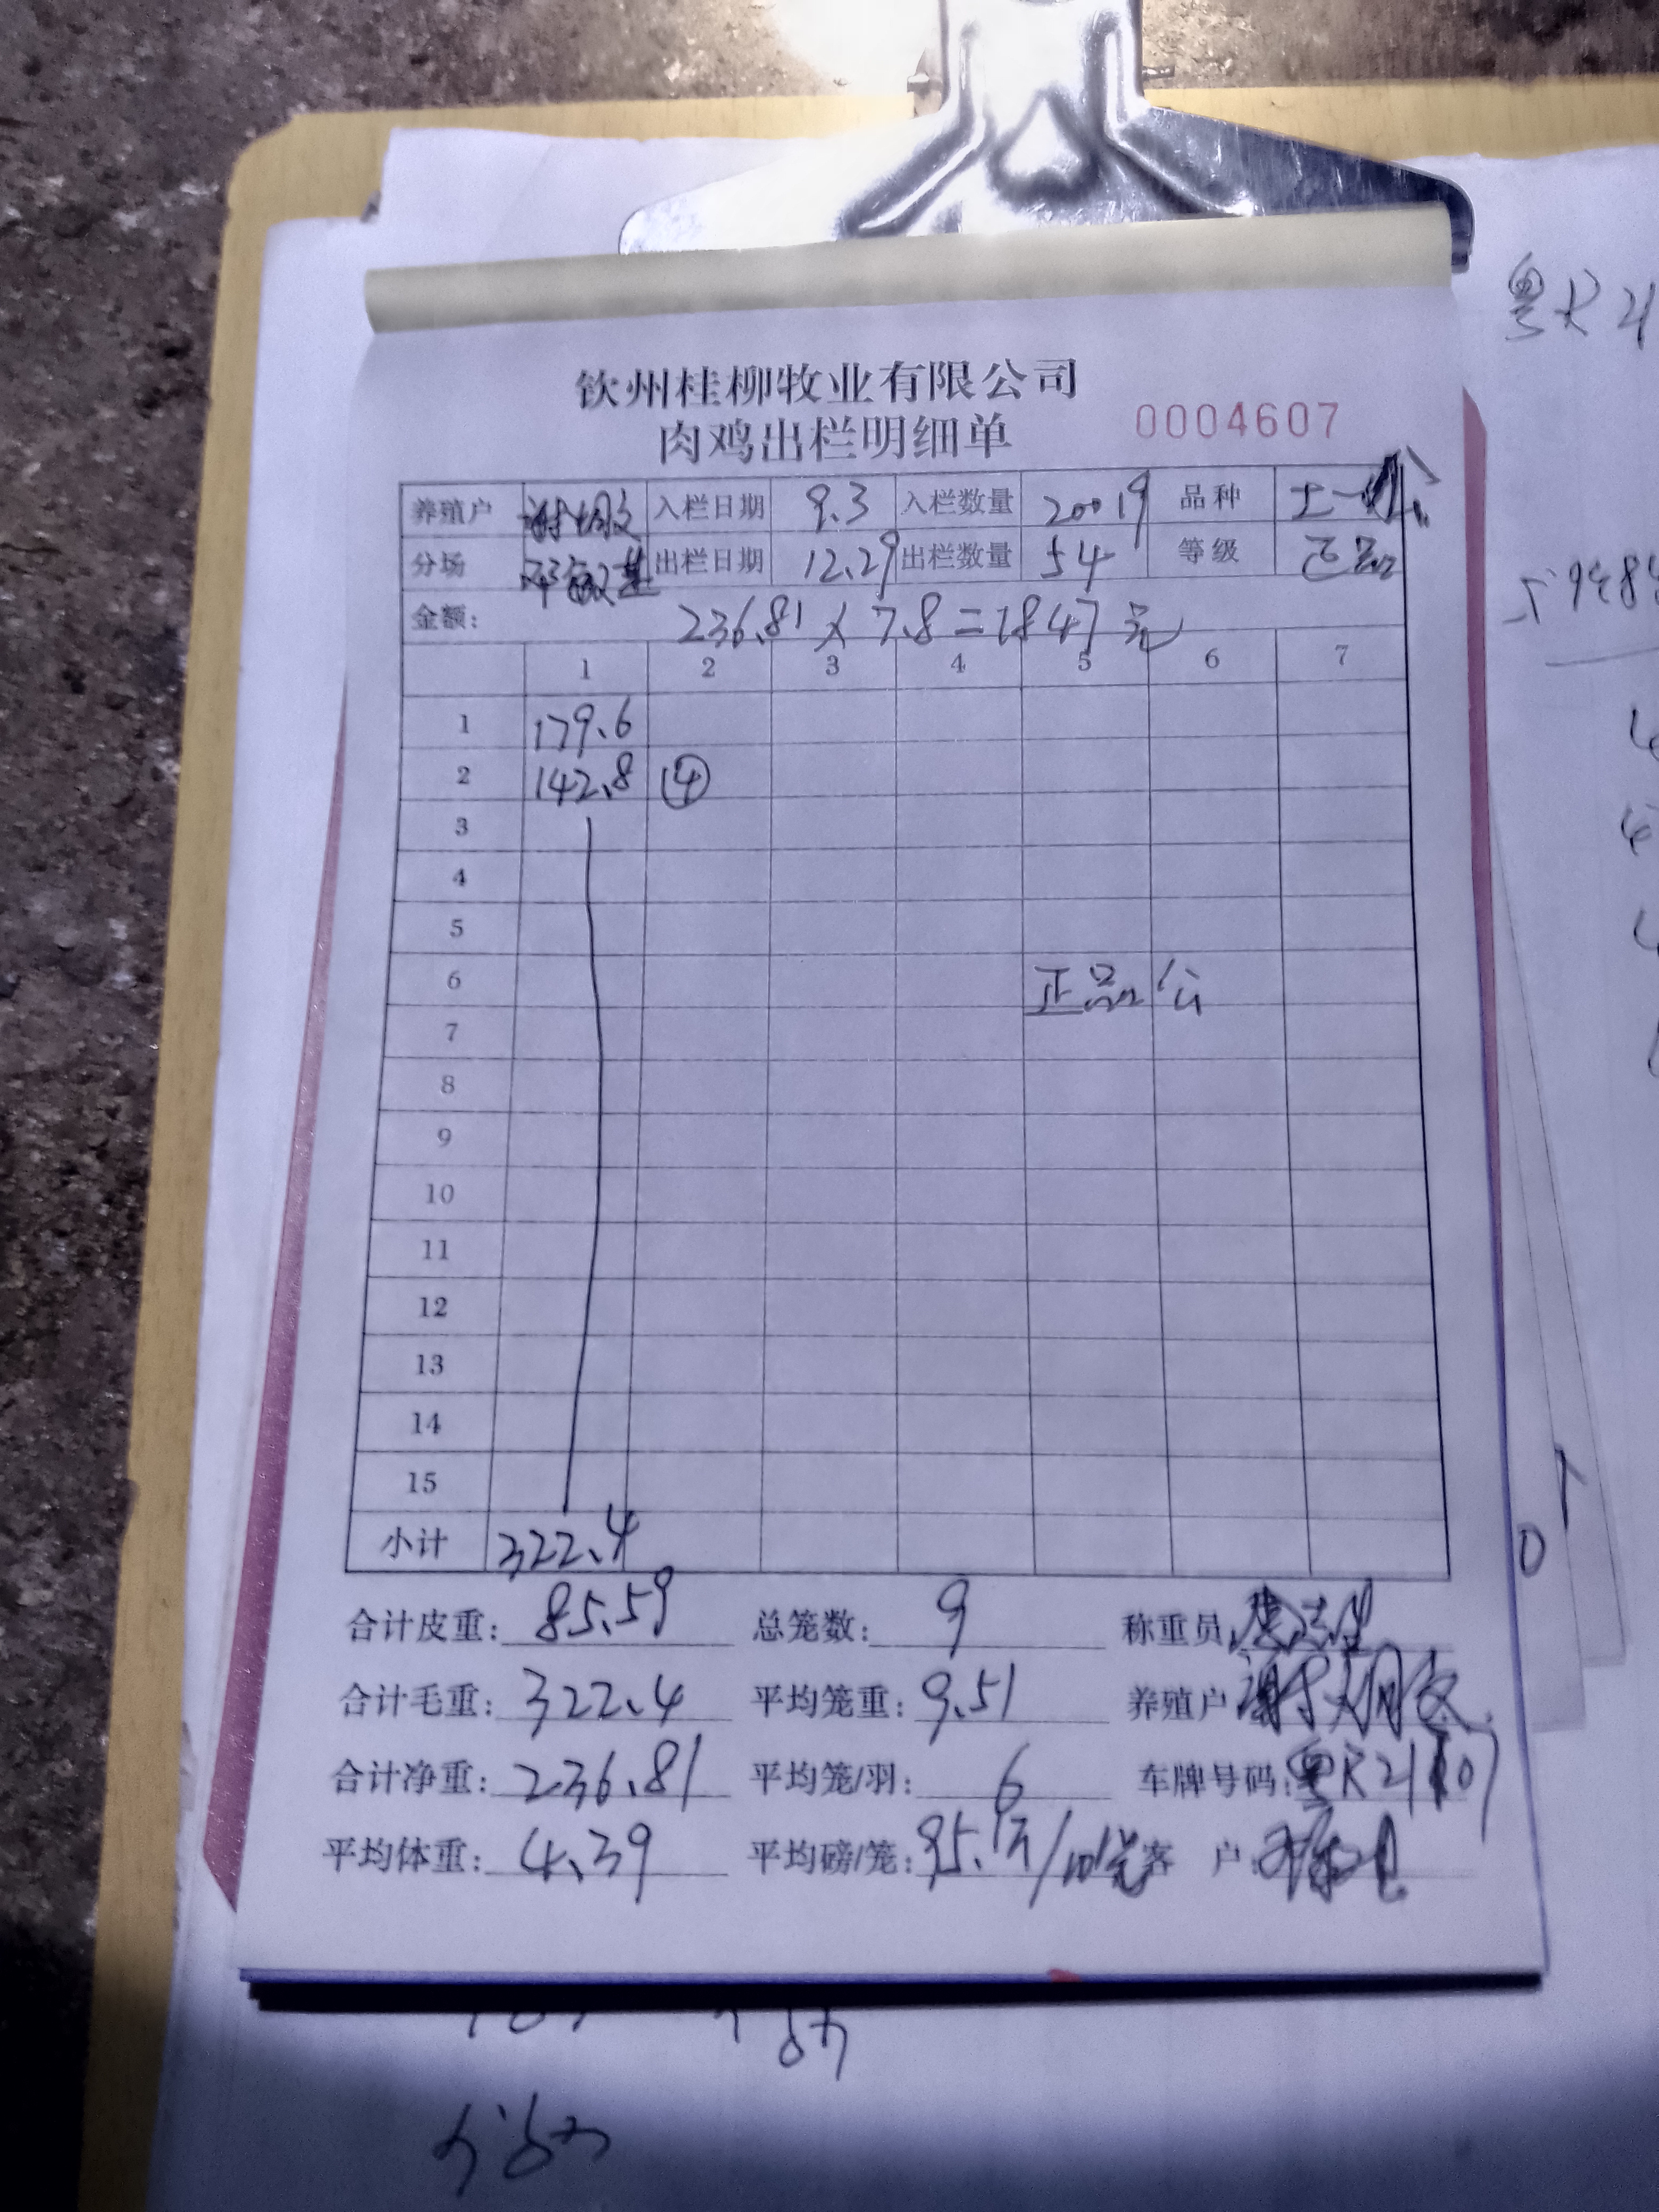 钦州桂柳牧业有限公司
肉鸡出栏明细单 0004607
养殖户 入栏日期 9.3 入栏数量 20019 品种 土一 公
分场 出栏日期 12.29 出栏数量 54 等级 正品
金额: 236.81 × 7.8 = 1847元
1 2 3 4 5 6 7
1 179.6
2 142.8 ④
3
4
5
6 正品 公
7
8
9
10
11
12
13
14
15
小计 322.4
合计皮重: 85.59 总笼数: 9 称重员
合计毛重: 322.4 平均笼重: 9.51 养殖户
合计净重: 236.81 平均笼/羽: 6 车牌号码: 粤R21
平均体重: 4.39 平均磅/笼: 95.1斤/10笼 客户:
粤R21